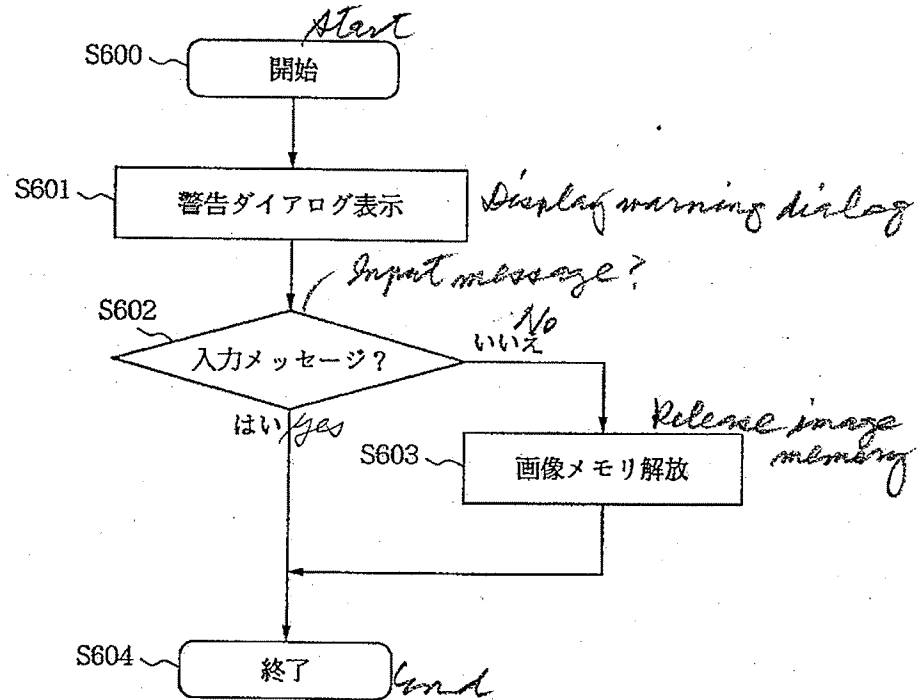 Start
S600
開始
S601
警告ダイアログ表示
Display warning dialog
Input message?
S602
入力メッセージ?
No
いいえ
はい
Yes
Release image
memory
S603
画像メモリ解放
S604
終了
End